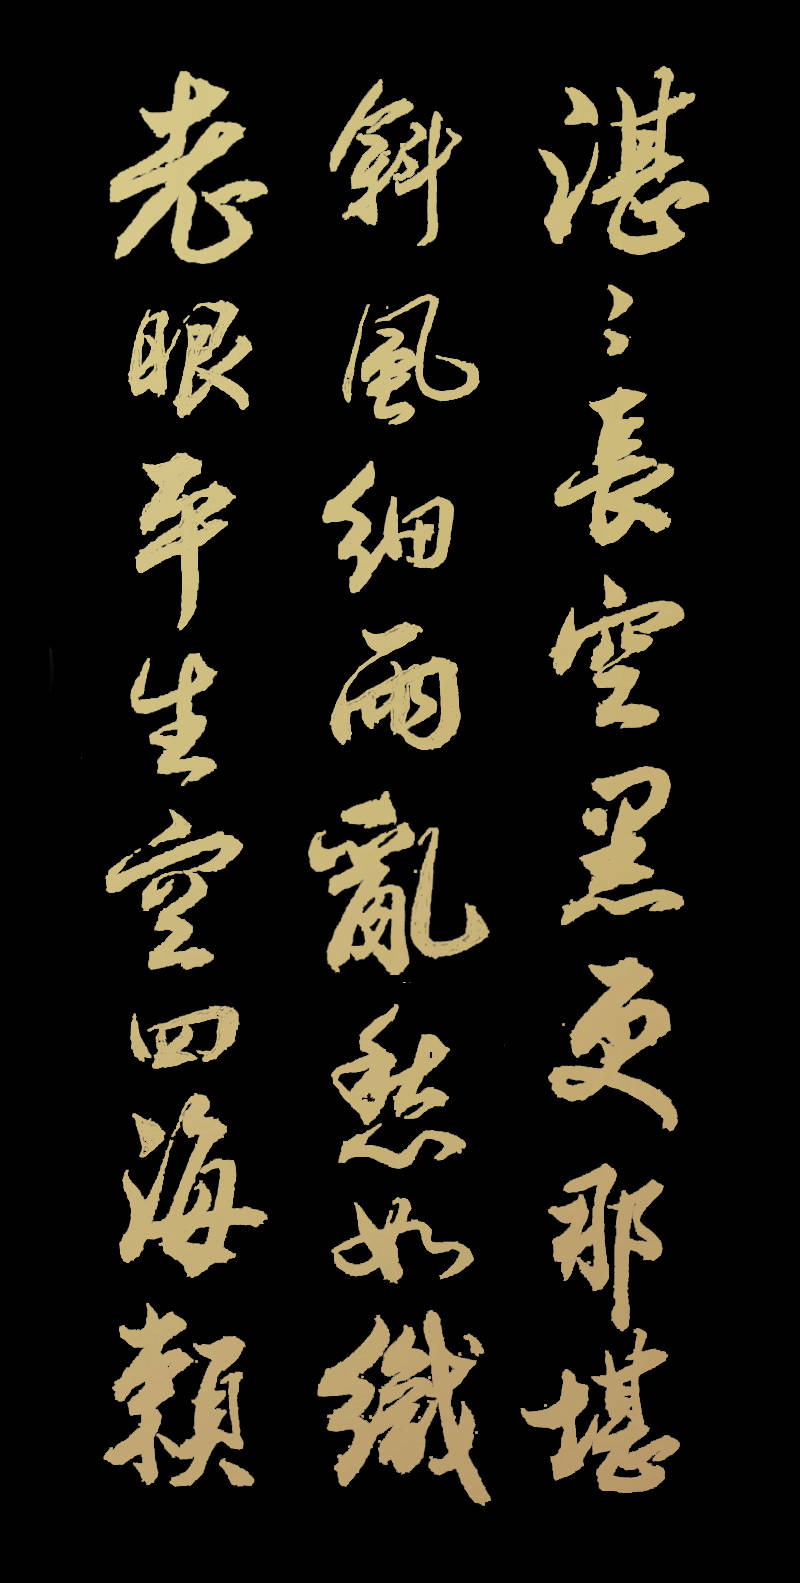 湛〻長空黑更那堪
斜風細雨亂愁如織
老眼平生空四海賴